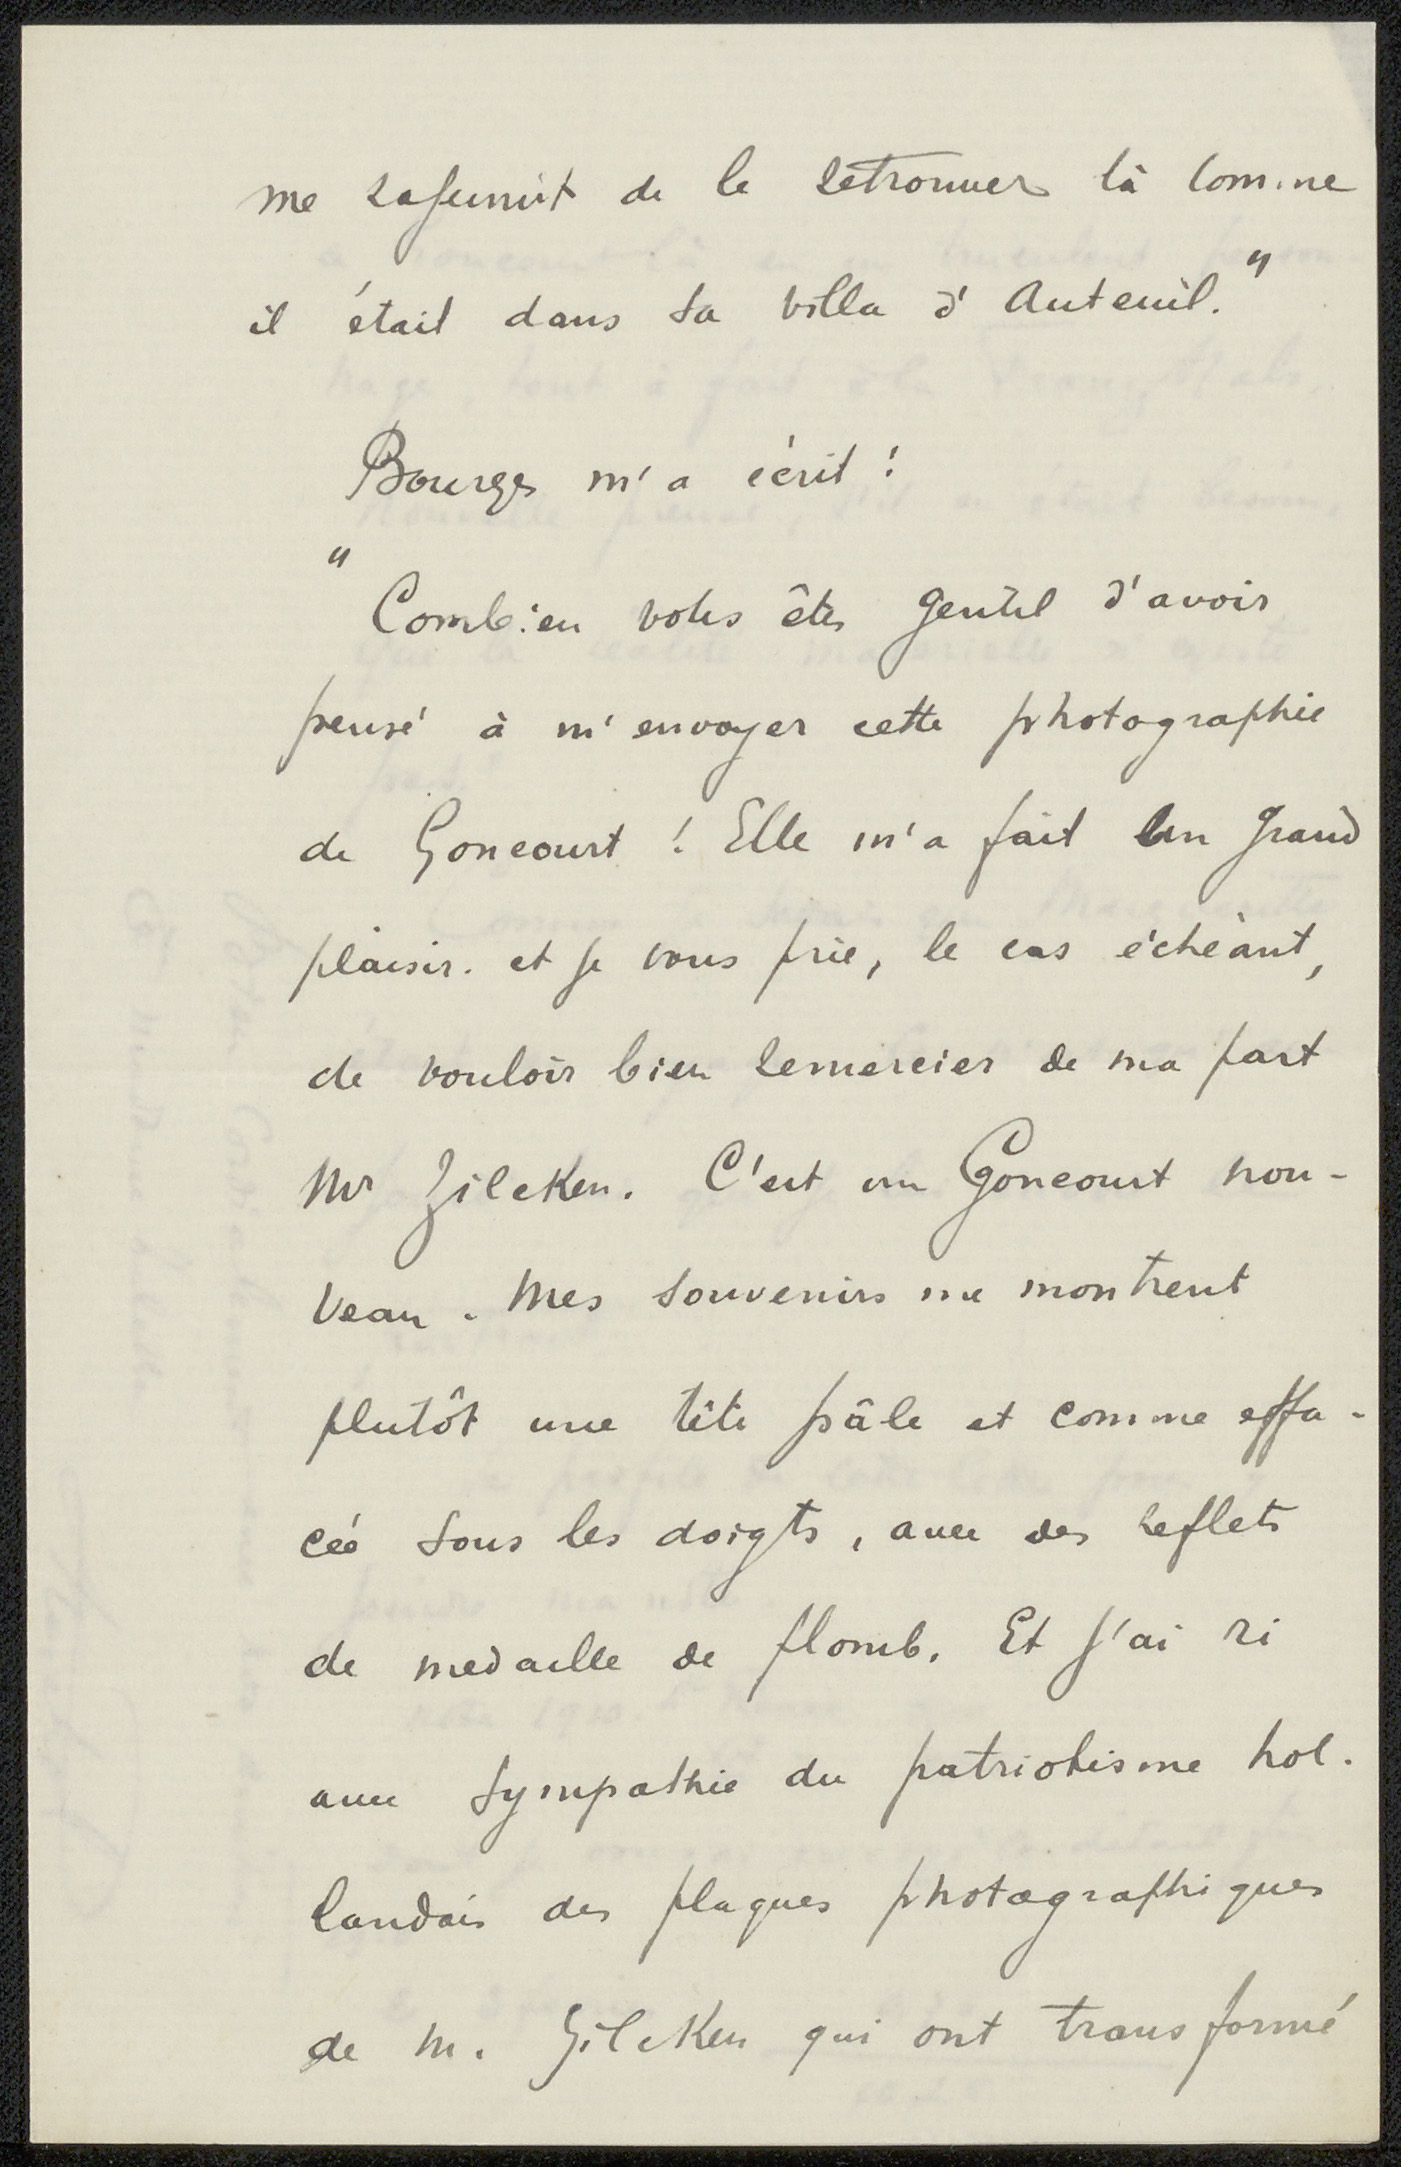 me rajeunit de le retrouver là comme
il était dans sa villa d'Auteuil."
Bourges m'a écrit :
"Combien vous êtes gentil d'avoir
pensé à m'envoyer cette photographie
de Goncourt ! Elle m'a fait un grand
plaisir. et je vous prie, le cas échéant,
de vouloir bien remercier de ma part
Mr Zilcken. C'est un Goncourt nou-
veau. Mes souvenirs me montrent
plutôt une tête pâle et comme effa-
cée sous les doigts, avec des reflets
de medaille de plomb. Et j'ai ri
avec sympathie du patriotisme hol-
landais des plaques photographiques
de M. Zilcken qui ont transformé